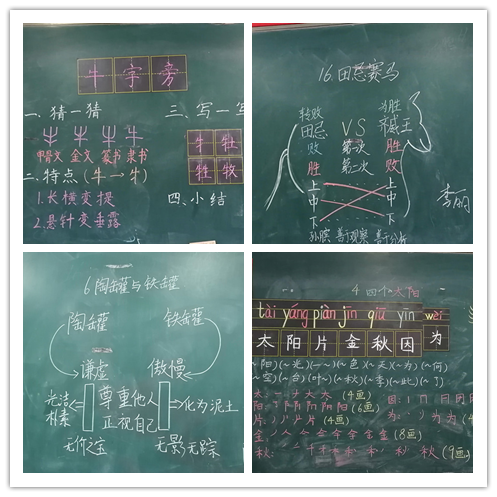 牛字旁
一、猜一猜
甲骨文 金文 篆书 隶书
二、特点(牛→牜)
1.长横变提
2.悬针变垂露
三、写一写
牛 牡
牲 牧
四、小结
16.田忌赛马
转败 为胜
田忌 VS 齐威王
败 第一次 胜
胜 第二次 败
上 上
中 中
下 下
孙膑 善于观察 善于分析
李丽
6陶罐与铁罐
陶罐 铁罐
谦虚 傲慢
光洁 朴素
尊重他人
正视自己
化为泥土
无价之宝 无影无踪
4 四个太阳
tài yáng piàn jīn qiū yīn wèi
太 阳 片 金 秋 因 为
(~阳)(~光)(一~)(~色)(~天)(~为)(~何)
(~空)(~台)(叶~)(~秋)(~季)(~此)(~了)
(4画)
(6画)
(4画)
(8画)
(9画)